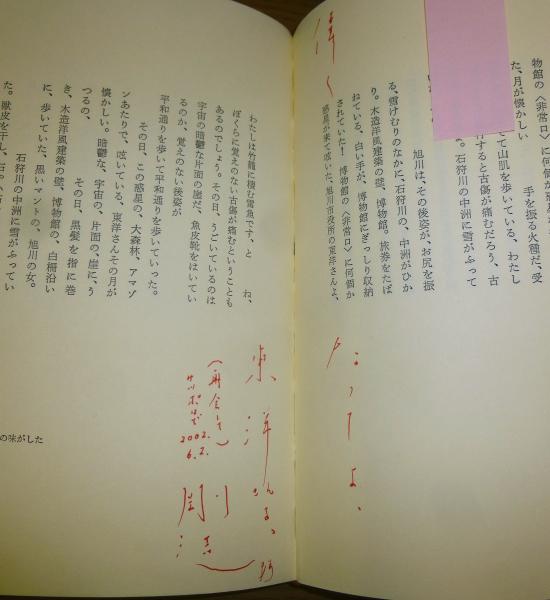 物館の〈非常口〉に何個か
た、月が懐かしい　手を振る火種だ、受
て山肌を歩いている、わたし
行すると古傷が痛むだろう、古
。石狩川の中洲に雪がふって
旭川は、その後姿が、お尻を振
る、雪けむりのなかに、石狩川の、中洲がひか
り。木造洋風建築の壁、博物館。旅券をたば
ねている、白い手が、博物館にぎっしり収納
されていた！　博物館の〈非常口〉に何個か
惑星が来て呟いた、旭川市役所の東洋さんよ、
偉く
わたしは竹籠に棲む雷魚です、と　ね、
ぼくらに覚えのない古傷が痛むということも
あるのでしょう。その日、うごいているのは
宇宙の暗鬱な片面の崖だ、魚皮靴をはいてい
るのか、覚えのない後姿が
平和通りを歩いて平和通りを歩いていった。
その日、この惑星の、大森林、アマゾ
ンあたりで、呟いている、東洋さんその月が
懐かしい。暗鬱な、宇宙の、片面の、崖に、う
つるの、　その日、黒髪を指に巻
き、木造洋風建築の壁、博物館の、白樺沿い
に、歩いていた、黒いマントの、旭川の女。
石狩川の中洲に雪がふってい
た。獣皮を干し、
東洋さん
2002.
6.2.
の味がした